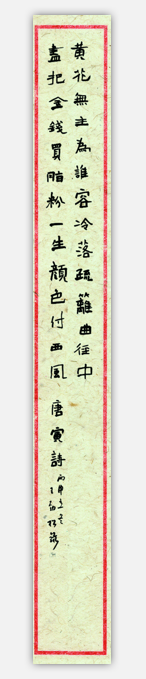 黄花無主為誰容冷落疏籬曲徑中
盡把金錢買脂粉一生顏色付西風 唐寅詩
丙申